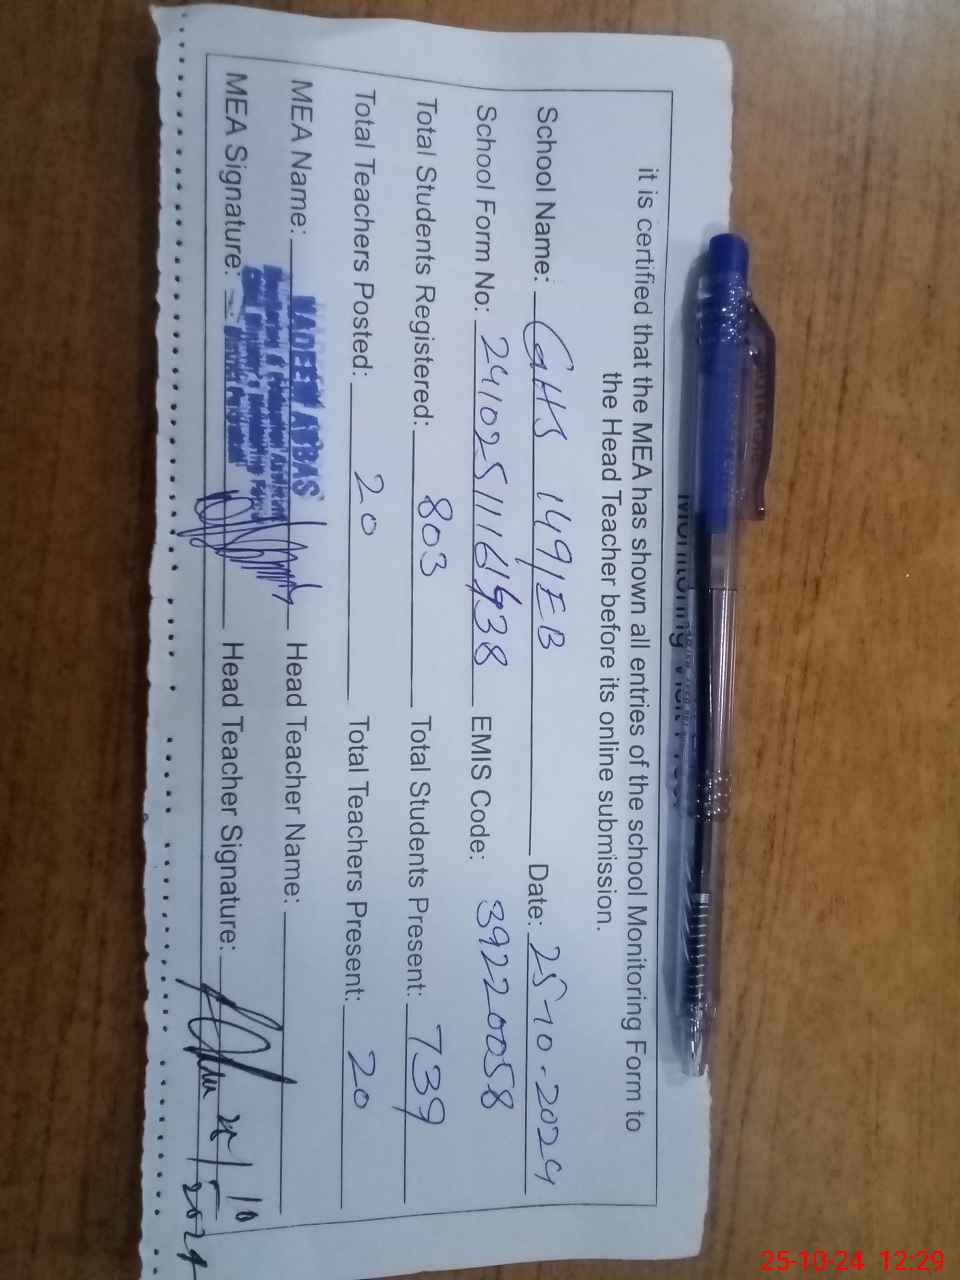 Monitoring Visit Proof
it is certified that the MEA has shown all entries of the school Monitoring Form to
the Head Teacher before its online submission.
School Name: GHS 149/EB Date: 25-10-2024
School Form No: 241025111161438 EMIS Code: 39220058
Total Students Registered: 803 Total Students Present: 739
Total Teachers Posted: 20 Total Teachers Present: 20
MEA Name: NADEEM ABBAS Head Teacher Name:
Monitoring & Evaluation Assistant
MEA Signature: Head Teacher Signature: 25/10/2024
25-10-24 12:29